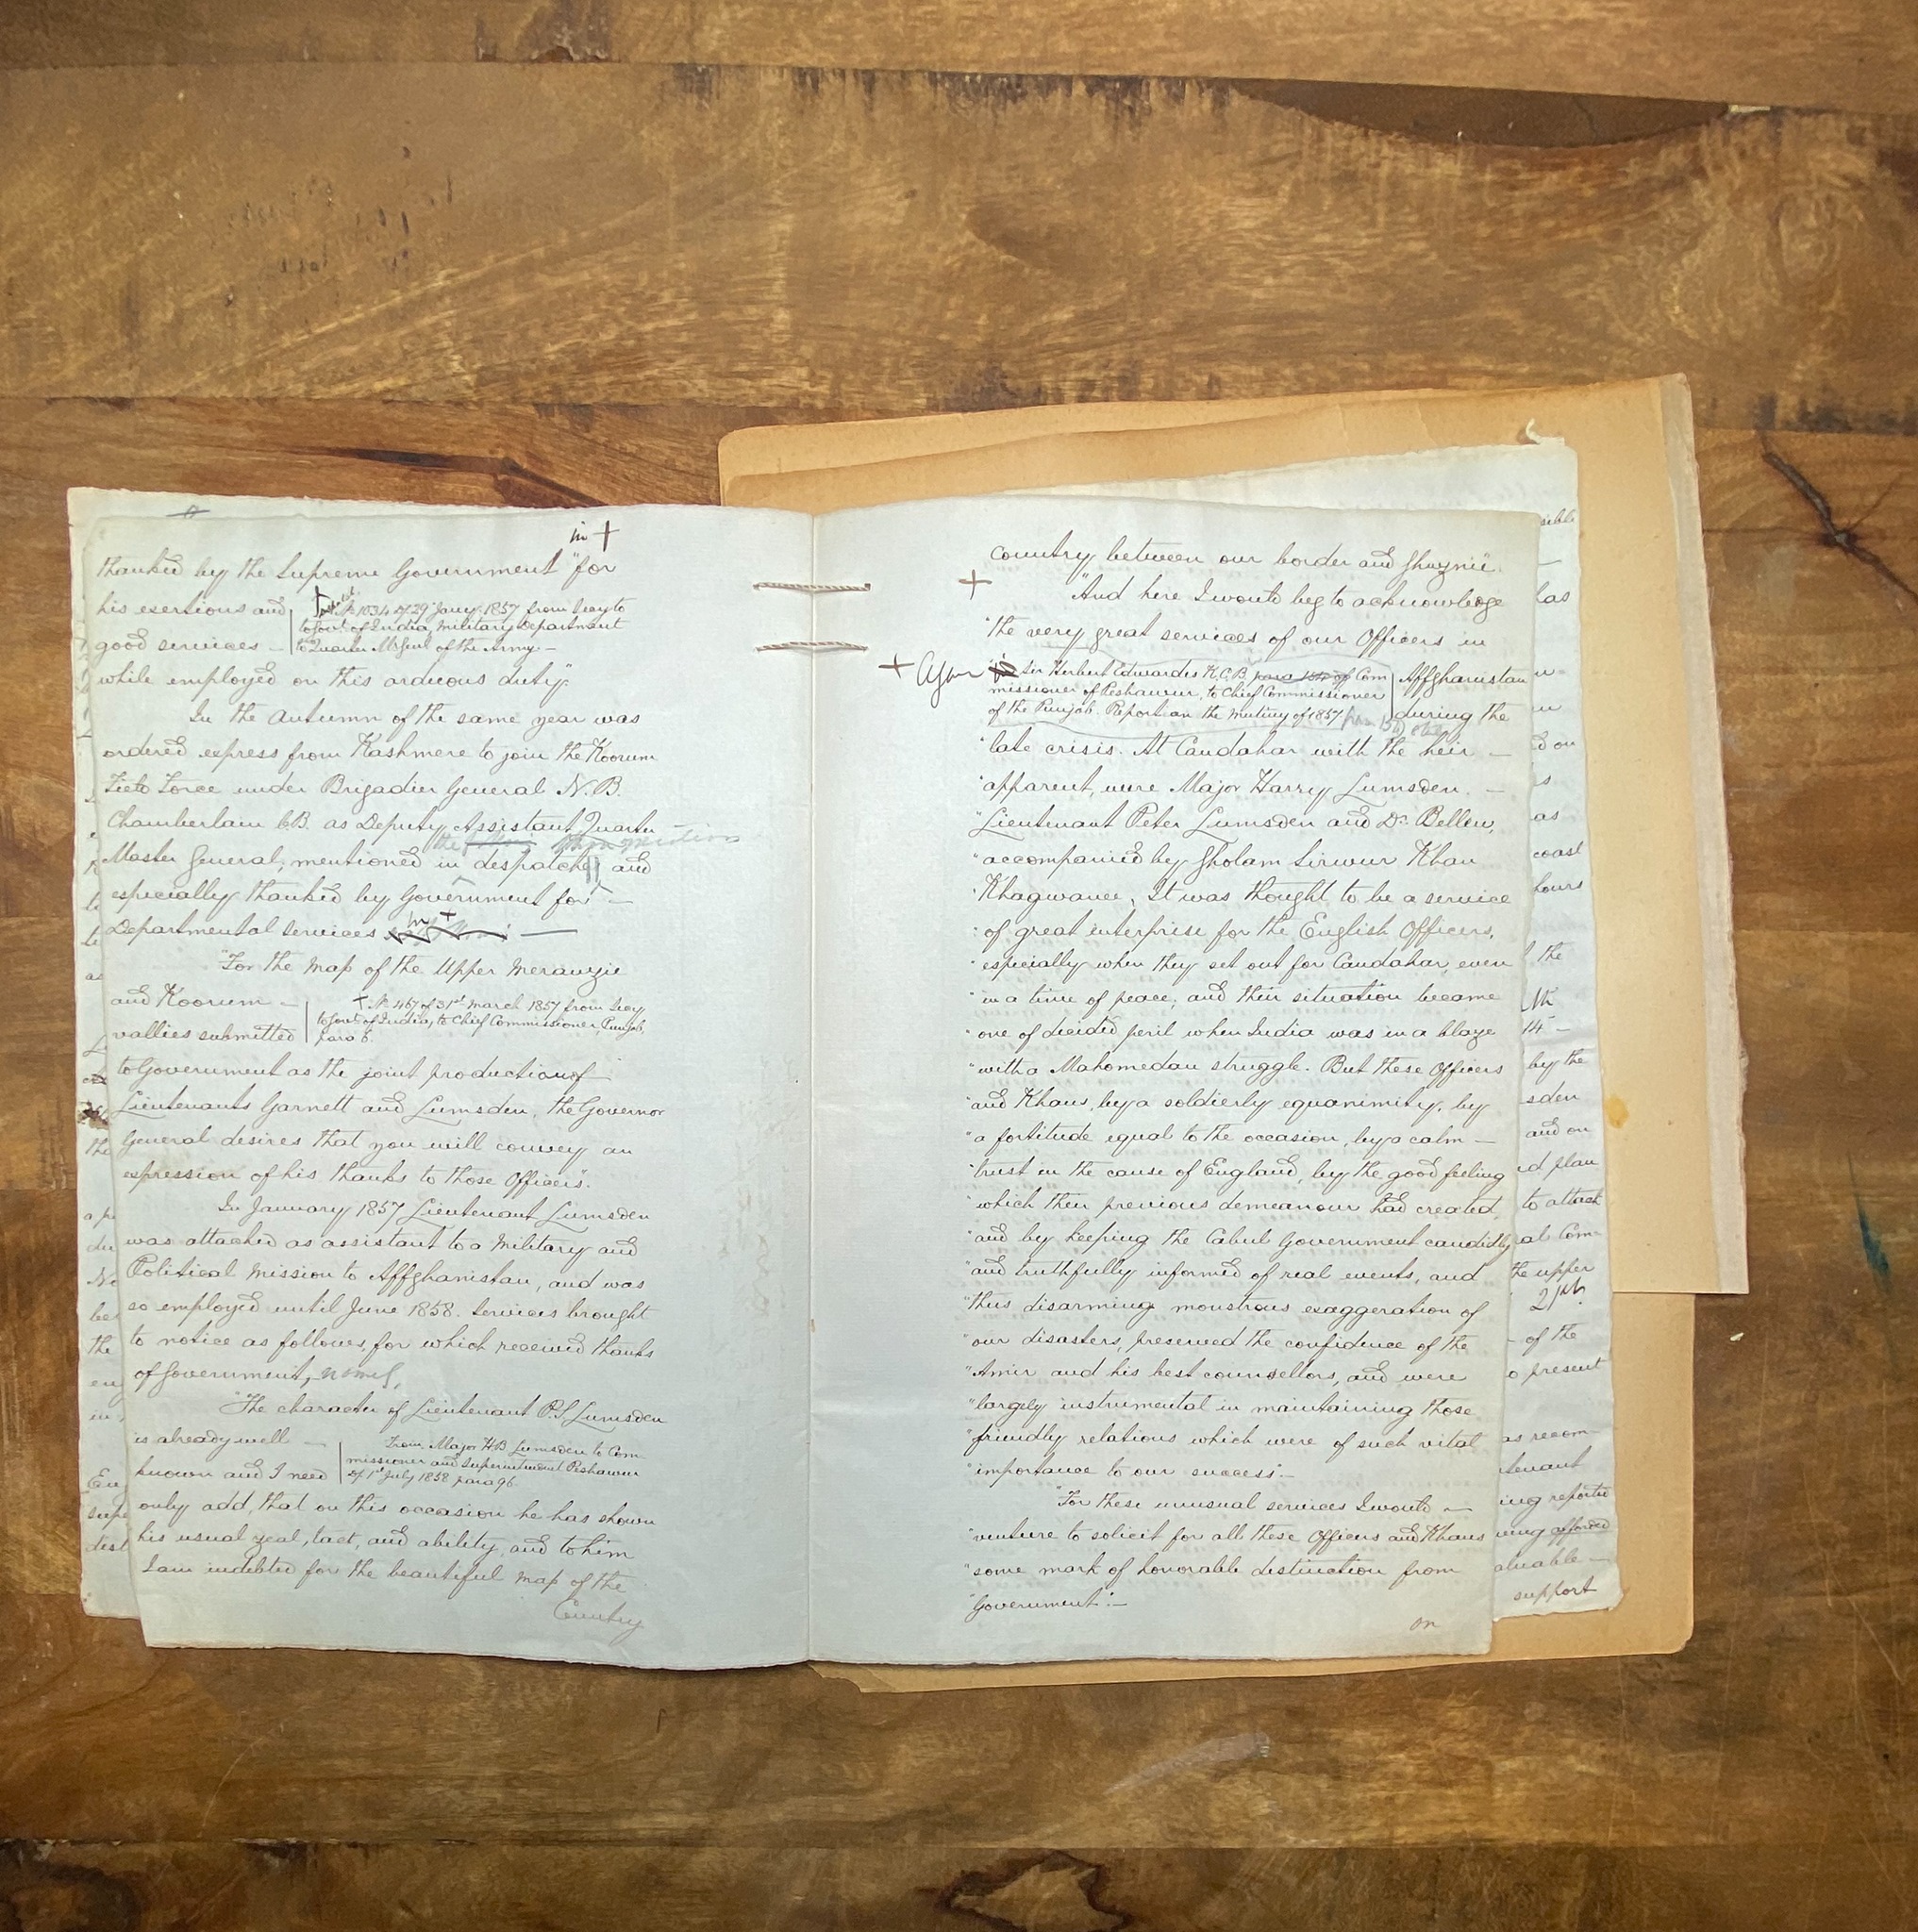 in +
thanked by the Supreme Government "for
his exertions and
good services —
No. 1034 of 29 Jany. 1857 from Secy to
to Govt. of India, Military Department
to Quarter Mr Genl of the Army. —
while employed on this arduous duty."
In the Autumn of the same year was
ordered express from Kashmere to join the Koorum
Field Force under Brigadier General N. B.
Chamberlain C.B. as Deputy Assistant Quarter
the
Master General; mentioned in despatches and
especially thanked by Government for —
Departmental services in + —
"For the Map of the Upper Meranzie
and Koorum —
vallies submitted
+ No. 467 of 31st March 1857 from Secy
to Govt of India, to Chief Commissioner, Punjab,
para 6.
to Government as the joint production of
Lieutenants Garnett and Lumsden, the Governor
General desires that you will convey an
expression of his thanks to those Officers".
In January 1857 Lieutenant Lumsden
was attached as assistant to a Military and
Political Mission to Affghanistan, and was
so employed until June 1858. Services brought
to notice as follows, for which received thanks
of Government,
"The character of Lieutenant P. S. Lumsden
is already well —
known and I need
From Major H B Lumsden to Com
missioner and Superintendent Peshawur
of 1st July 1858 para 96.
only add, that on this occasion he has shown
his usual zeal, tact, and ability, and to him
I am indebted for the beautiful Map of the
Country
country between our border and Ghuznii".
+
"And here I would beg to acknowledge
"the very great services of our Officers in
+ Again
Sir Herbert Edwardes K.C.B. para 154 of Com
missioner of Peshawur, to Chief Commissioner
of the Punjab. Report on the Mutiny of 1857
Affghanistan
during the
"late crisis. At Candahar with the heir —
"apparent, were Major Harry Lumsden. —
"Lieutenant Peter Lumsden and Dr. Bellew,
"accompanied by Gholam Sirwur Khan
"Khagwanee, It was thought to be a service
"of great enterprise for the English Officers,
"especially when they set out for Candahar, even
"in a time of peace; and their situation became
"one of decided peril when India was in a blaze
"with a Mahomedan struggle. But these Officers
"and Khans, by a soldierly equanimity, by
"a fortitude equal to the occasion, by a calm —
"trust in the cause of England, by the good feeling
"which their previous demeanour had created,
"and by keeping the Cabul Government candidly
"and truthfully informed of real events, and
"thus disarming monstrous exaggeration of
"our disasters, preserved the confidence of the
"Amir and his best counsellors, and were
"largely instrumental in maintaining those
"friendly relations which were of such vital
"importance to our success". —
"For these unusual services I would —
"venture to solicit for all these Officers and Khans
"some mark of honorable distinction from
"Government". —
on
has
as
coast
hours
the
14 —
by the
and on
to attack
the upper
of the
present
as recom-
support